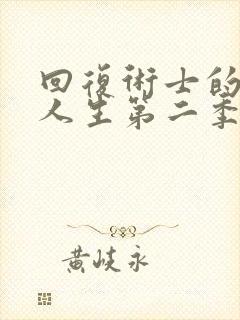 回復術士的
人生第二季
黄岐永